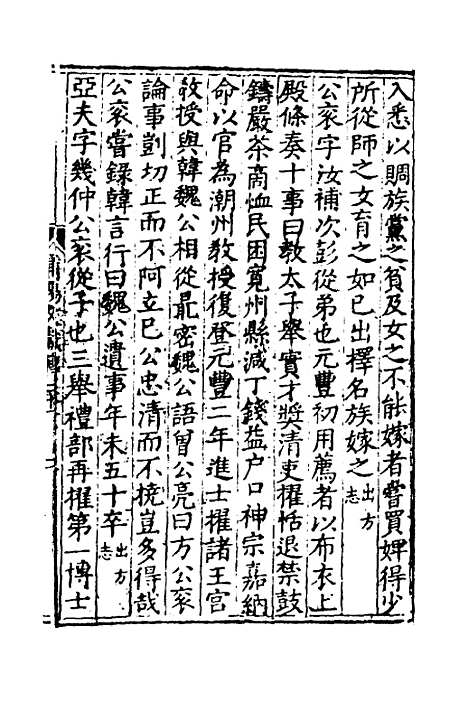 入悉以賙族黨之貧及女之不能嫁者嘗買婢得少
所從師之女育之如已出擇名族嫁之出方志
公衮字汝補次彭從弟也元豐初用薦者以布衣上
殿條奏十事曰教太子舉實才奬清吏擢恬退禁鼓
鑄嚴茶商恤民困寬州縣減丁錢益户口神宗嘉納
命以官為潮州教授復登元豐二年進士擢諸王宫
教授與韓魏公相從最密魏公語曾公亮曰方公衮
論事剴切正而不阿立已公忠清而不撓豈多得哉
公衮嘗錄韓言行曰魏公遺事年未五十卒出方志
亞夫字幾仲公衮從子也三舉禮部再擢第一博士